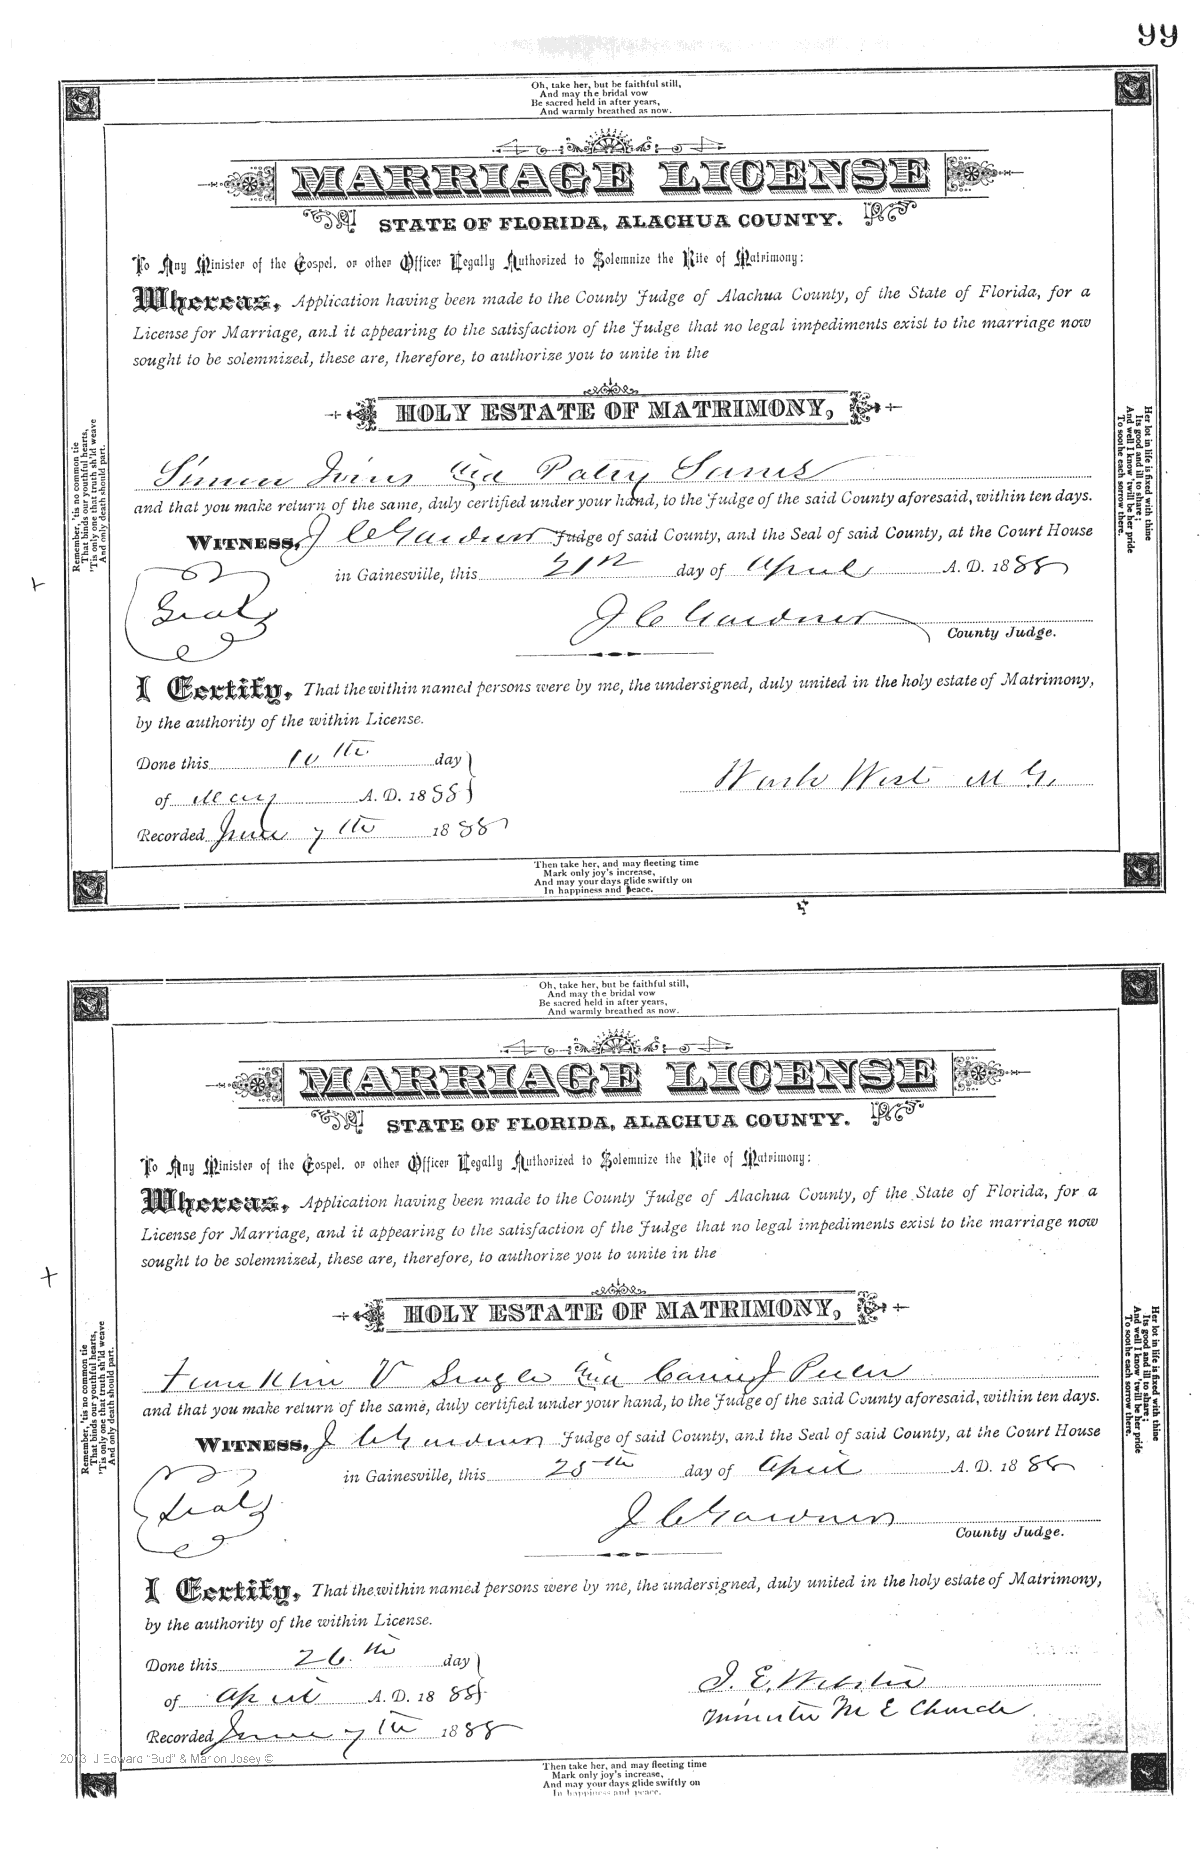 99
Oh, take her, but be faithful still,
And may the bridal vow
Be sacred held in after years,
And warmly breathed as now.
MARRIAGE LICENSE
STATE OF FLORIDA, ALACHUA COUNTY.
To Any Minister of the Gospel, or other Officer Legally Authorized to Solemnize the Rite of Matrimony:
Whereas, Application having been made to the County Judge of Alachua County, of the State of Florida, for a
License for Marriage, and it appearing to the satisfaction of the Judge that no legal impediments exist to the marriage now
sought to be solemnized, these are, therefore, to authorize you to unite in the
HOLY ESTATE OF MATRIMONY,
and
and that you make return of the same, duly certified under your hand, to the Judge of the said County aforesaid, within ten days.
WITNESS, J C Gardner Judge of said County, and the Seal of said County, at the Court House
in Gainesville, this 21st day of April A. D. 1888
Seal
J C Gardner
County Judge.
I Certify, That the within named persons were by me, the undersigned, duly united in the holy estate of Matrimony,
by the authority of the within License.
Done this 10th day
of May A. D. 1888
Wash West M G.
Recorded June 7th 1888
Then take her, and may fleeting time
Mark only joy's increase,
And may your days glide swiftly on
In happiness and peace.
Remember, 'tis no common tie
That binds our youthful hearts,
'Tis only one that truth sh'ld weave
And only death should part.
Her lot in life is fixed with thine
Its good and ill to share;
And well I know 'twill be her pride
To soothe each sorrow there.
Oh, take her, but be faithful still,
And may the bridal vow
Be sacred held in after years,
And warmly breathed as now.
MARRIAGE LICENSE
STATE OF FLORIDA, ALACHUA COUNTY.
To Any Minister of the Gospel, or other Officer Legally Authorized to Solemnize the Rite of Matrimony:
Whereas, Application having been made to the County Judge of Alachua County, of the State of Florida, for a
License for Marriage, and it appearing to the satisfaction of the Judge that no legal impediments exist to the marriage now
sought to be solemnized, these are, therefore, to authorize you to unite in the
HOLY ESTATE OF MATRIMONY,
Franklin V Seagle and Carrie J Peeler
and that you make return of the same, duly certified under your hand, to the Judge of the said County aforesaid, within ten days.
WITNESS, J C Gardner Judge of said County, and the Seal of said County, at the Court House
in Gainesville, this 25th day of April A. D. 1888
Seal
J C Gardner
County Judge.
I Certify, That the within named persons were by me, the undersigned, duly united in the holy estate of Matrimony,
by the authority of the within License.
Done this 26th day
of April A. D. 1888
J. E. Webster
Minister M E Church
Recorded June 7th 1888
2013 J Edward "Bud" & Marion Josey ©
Then take her, and may fleeting time
Mark only joy's increase,
And may your days glide swiftly on
In happiness and peace.
Remember, 'tis no common tie
That binds our youthful hearts,
'Tis only one that truth sh'ld weave
And only death should part.
Her lot in life is fixed with thine
Its good and ill to share;
And well I know 'twill be her pride
To soothe each sorrow there.